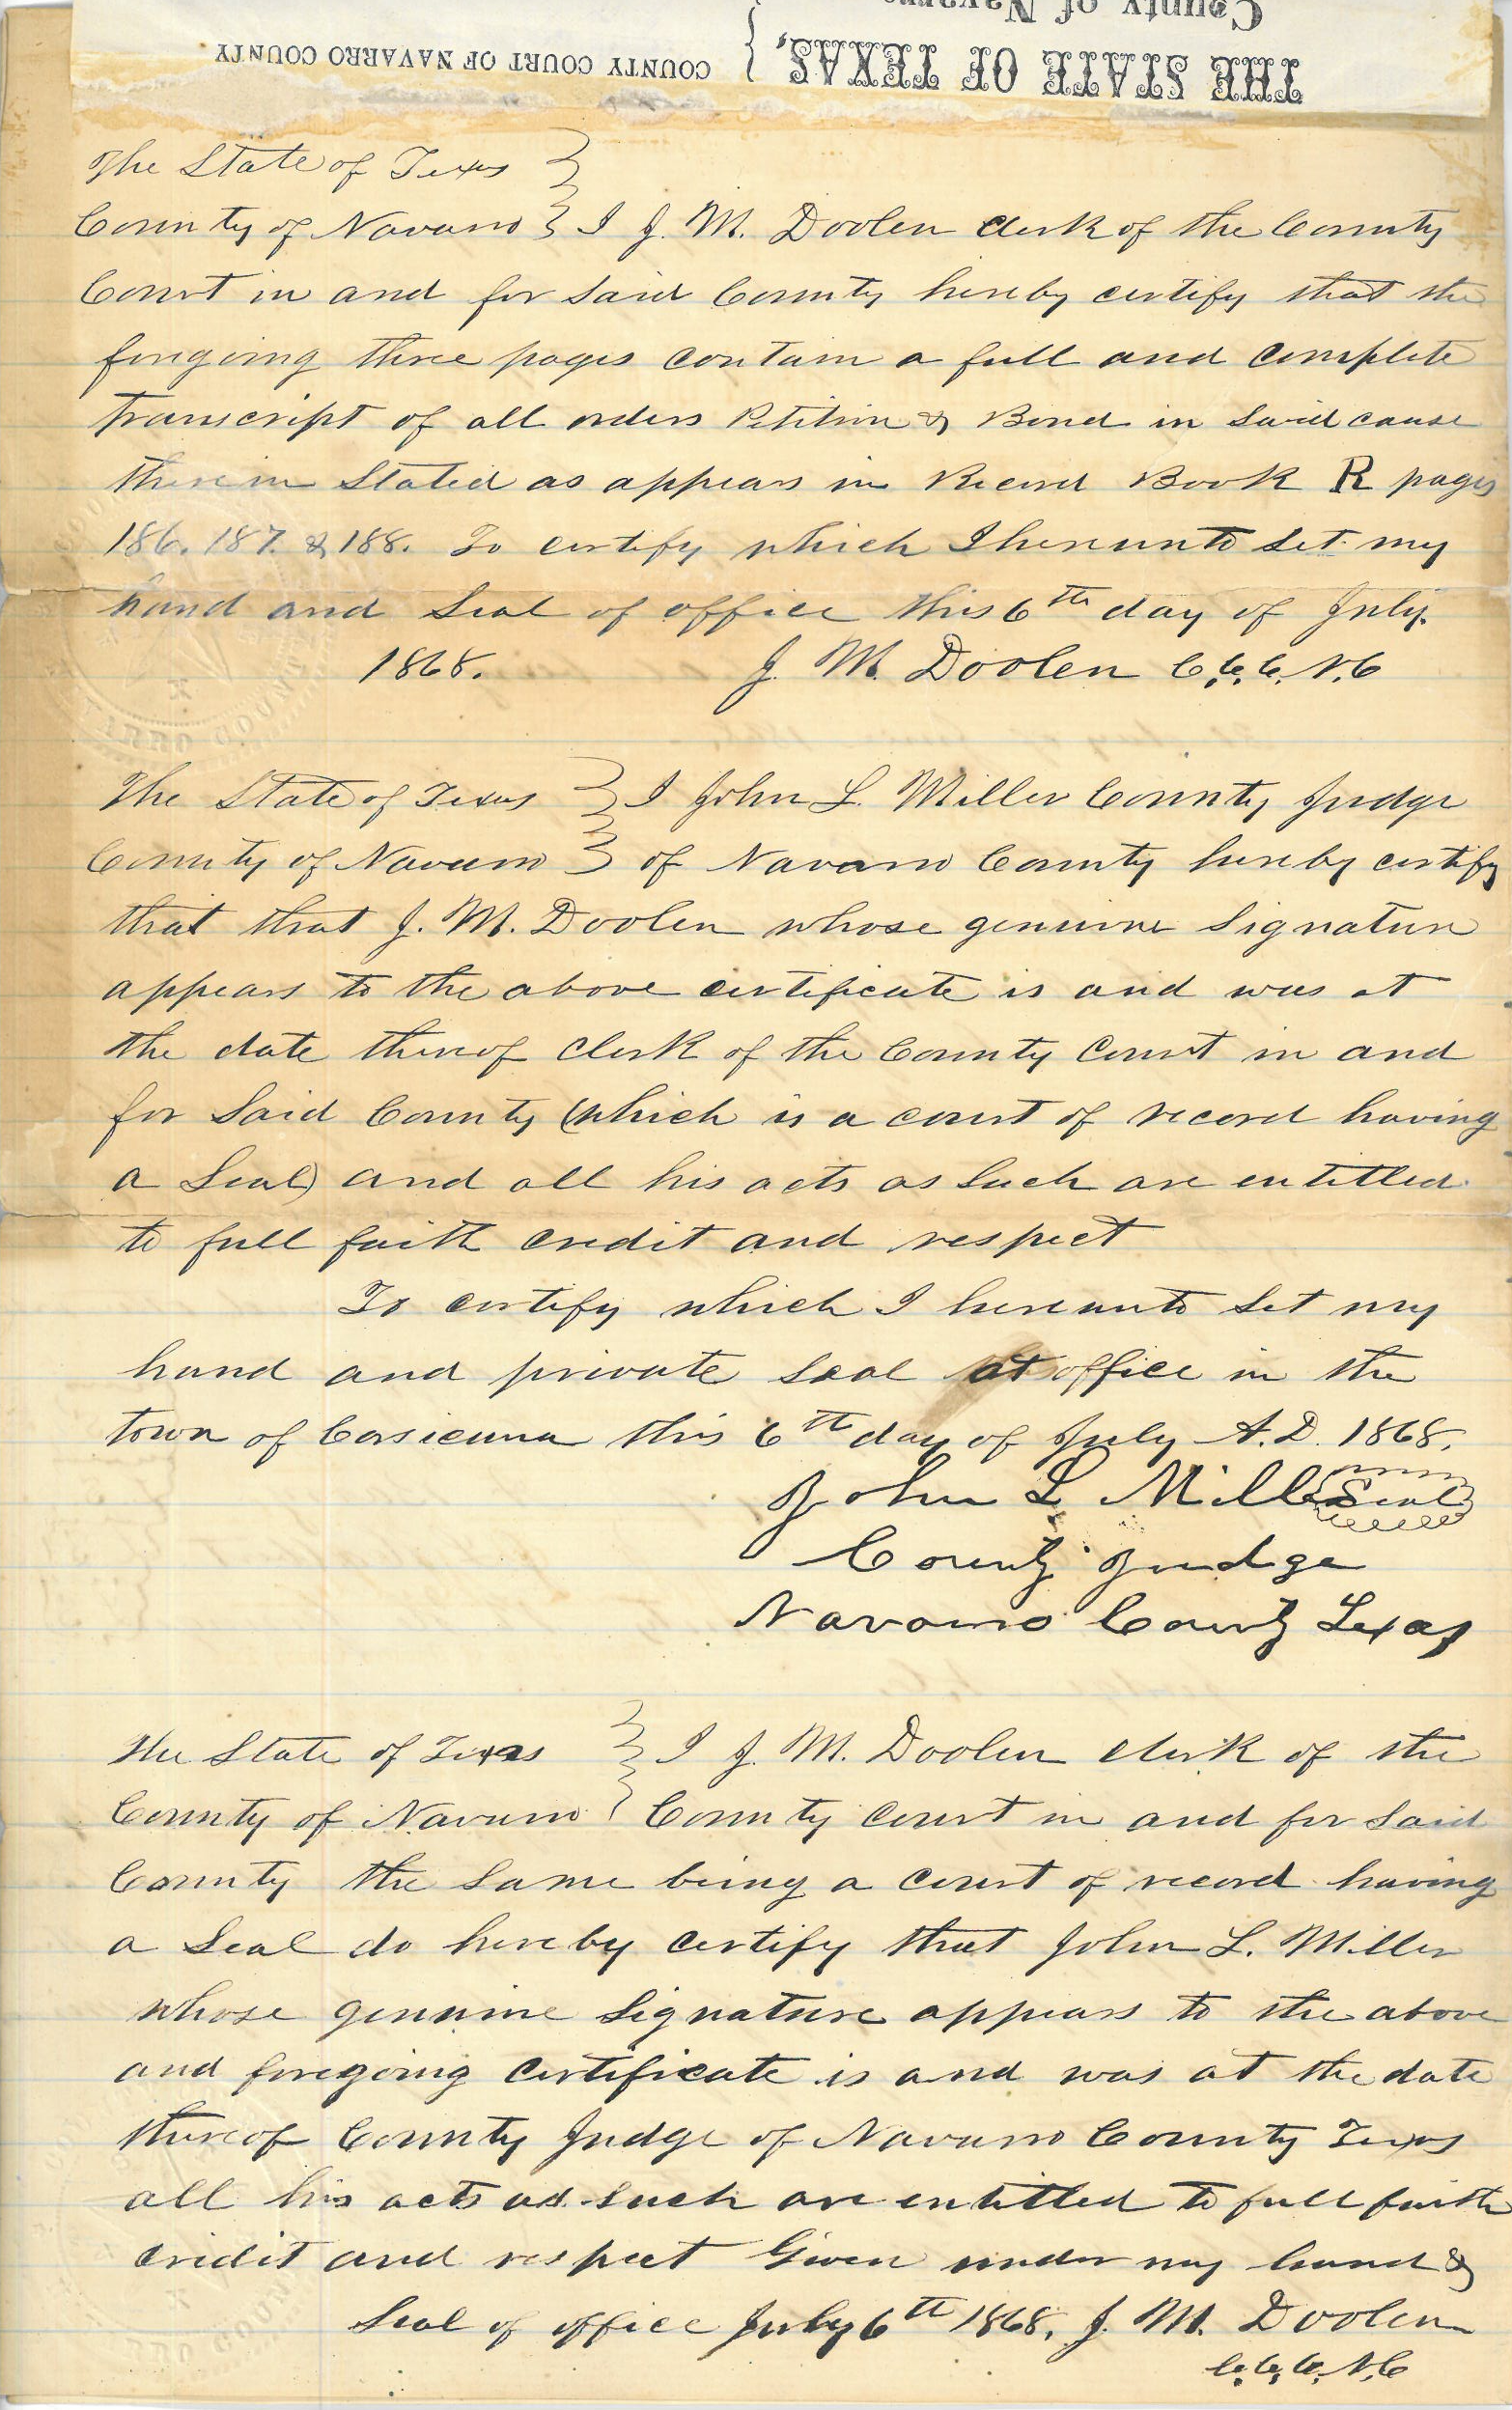 County of Navarro
THE STATE OF TEXAS, } COUNTY COURT OF NAVARRO COUNTY
The State of Texas }
County of Navarro } I J. M. Doolen clerk of the County
Court in and for said County hereby certify that the
foregoing three pages contain a full and complete
transcript of all orders Petition & Bond in said cause
therein stated as appears in Record Book R pages
186. 187. & 188. To certify which I hereunto set my
hand and seal of office this 6th day of July.
1868. J. M. Doolen C.C.C.N.C
The State of Texas } I John L. Miller County Judge
County of Navarro } of Navarro County hereby certify
that that J. M. Doolen whose genuine signature
appears to the above certificate is and was at
the date thereof clerk of the County Court in and
for said County (which is a court of record having
a Seal) and all his acts as such are entitled
to full faith credit and respect
To certify which I hereunto set my
hand and private seal at office in the
town of Corsicana this 6th day of July A.D. 1868.
John L Miller Seal
County Judge
Navarro County Texas
The State of Texas } I J. M. Doolen clerk of the
County of Navarro } County Court in and for said
County the same being a court of record having
a Seal do hereby certify that John L. Miller
whose genuine signature appears to the above
and foregoing certificate is and was at the date
thereof County Judge of Navarro County Texas
all his acts as such are entitled to full faith
credit and respect Given under my hand &
Seal of office July 6th 1868. J. M. Doolen
C.C.C.N.C